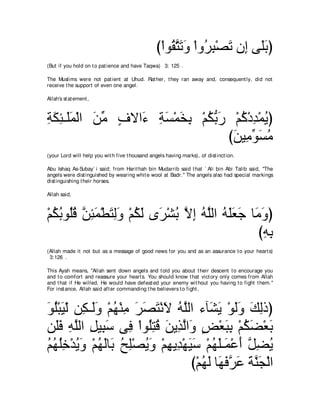 (بَلَى إِن تَصْبِرُواْ وَتَتَّقُواْ)
(But if you hold on to patience and have Taqwa) 3: 125 .
The Muslims were not patient at Uhud. Rather, they ran away and, consequently, did not
receive the support of even one angel.
Allah's statement,
يُمْدِدْكُمْ رَبُّكُمْ بِخَمْسَةِ ءَالافٍ مِّنَ الْمَلَـئِكَةِ
مُسَوِّمِينَ)
(your Lord will help you with five thousand angels having marks), of distinction.
Abu Ishaq As-Subay` i said; from Harithah bin Mudarrib said that `Ali bin Abi Talib said, "The
angels were distinguished by wearing white wool at Badr." The angels also had special markings
distinguishing their horses.
Allah said,
(وَمَا جَعَلَهُ اللَّهُ إِلاَّ بُشْرَى لَكُمْ وَلِتَطْمَئِنَّ قُلُوبُكُمْ
بِهِ)
(Allah made it not but as a message of good news for you and as an assurance to your hearts)
3:126 .
This Ayah means, "Allah sent down angels and told you about their descent to encourage you
and to comfort and reassure your hearts. You should know that victory only comes from Allah
and that if He willed, He would have defeated your enemy without you having to fight them."
For instance, Allah said after commanding the believers to fight,
ذَلِكَ وَلَوْ يَشَآءُ اللَّهُ لاَنْتَصَرَ مِنْهُمْ وَلَـكِن لِّيَبْلُوَ
بَعْضَكُمْ بِبَعْضٍ وَالَّذِينَ قُتِلُواْ فِى سَبِيلِ اللَّهِ فَلَن
يُضِلَّ أَعْمَـلَهُمْ سَيَهْدِيهِمْ وَيُصْلِحُ بَالَهُمْ وَيُدْخِلُهُمُ
الْجَنَّةَ عَرَّفَهَا لَهُمْ)